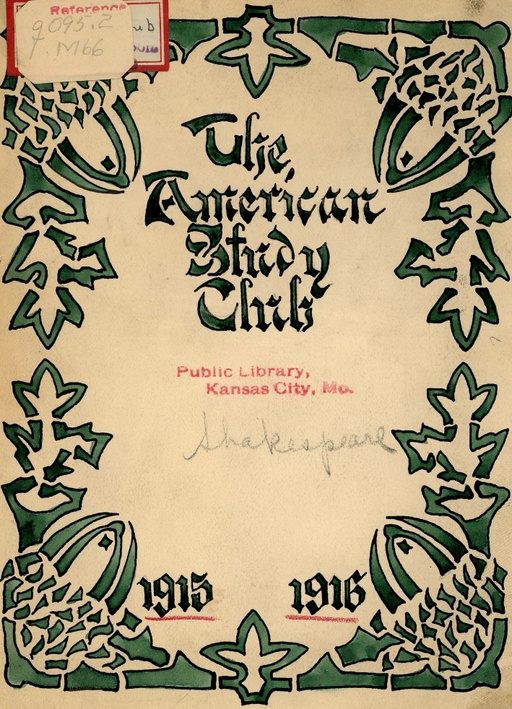 Reference
g 095.2
f. M66
ub
The
American
Study
Club
Public Library,
Kansas City, Mo.
Shakespeare
1915 1916